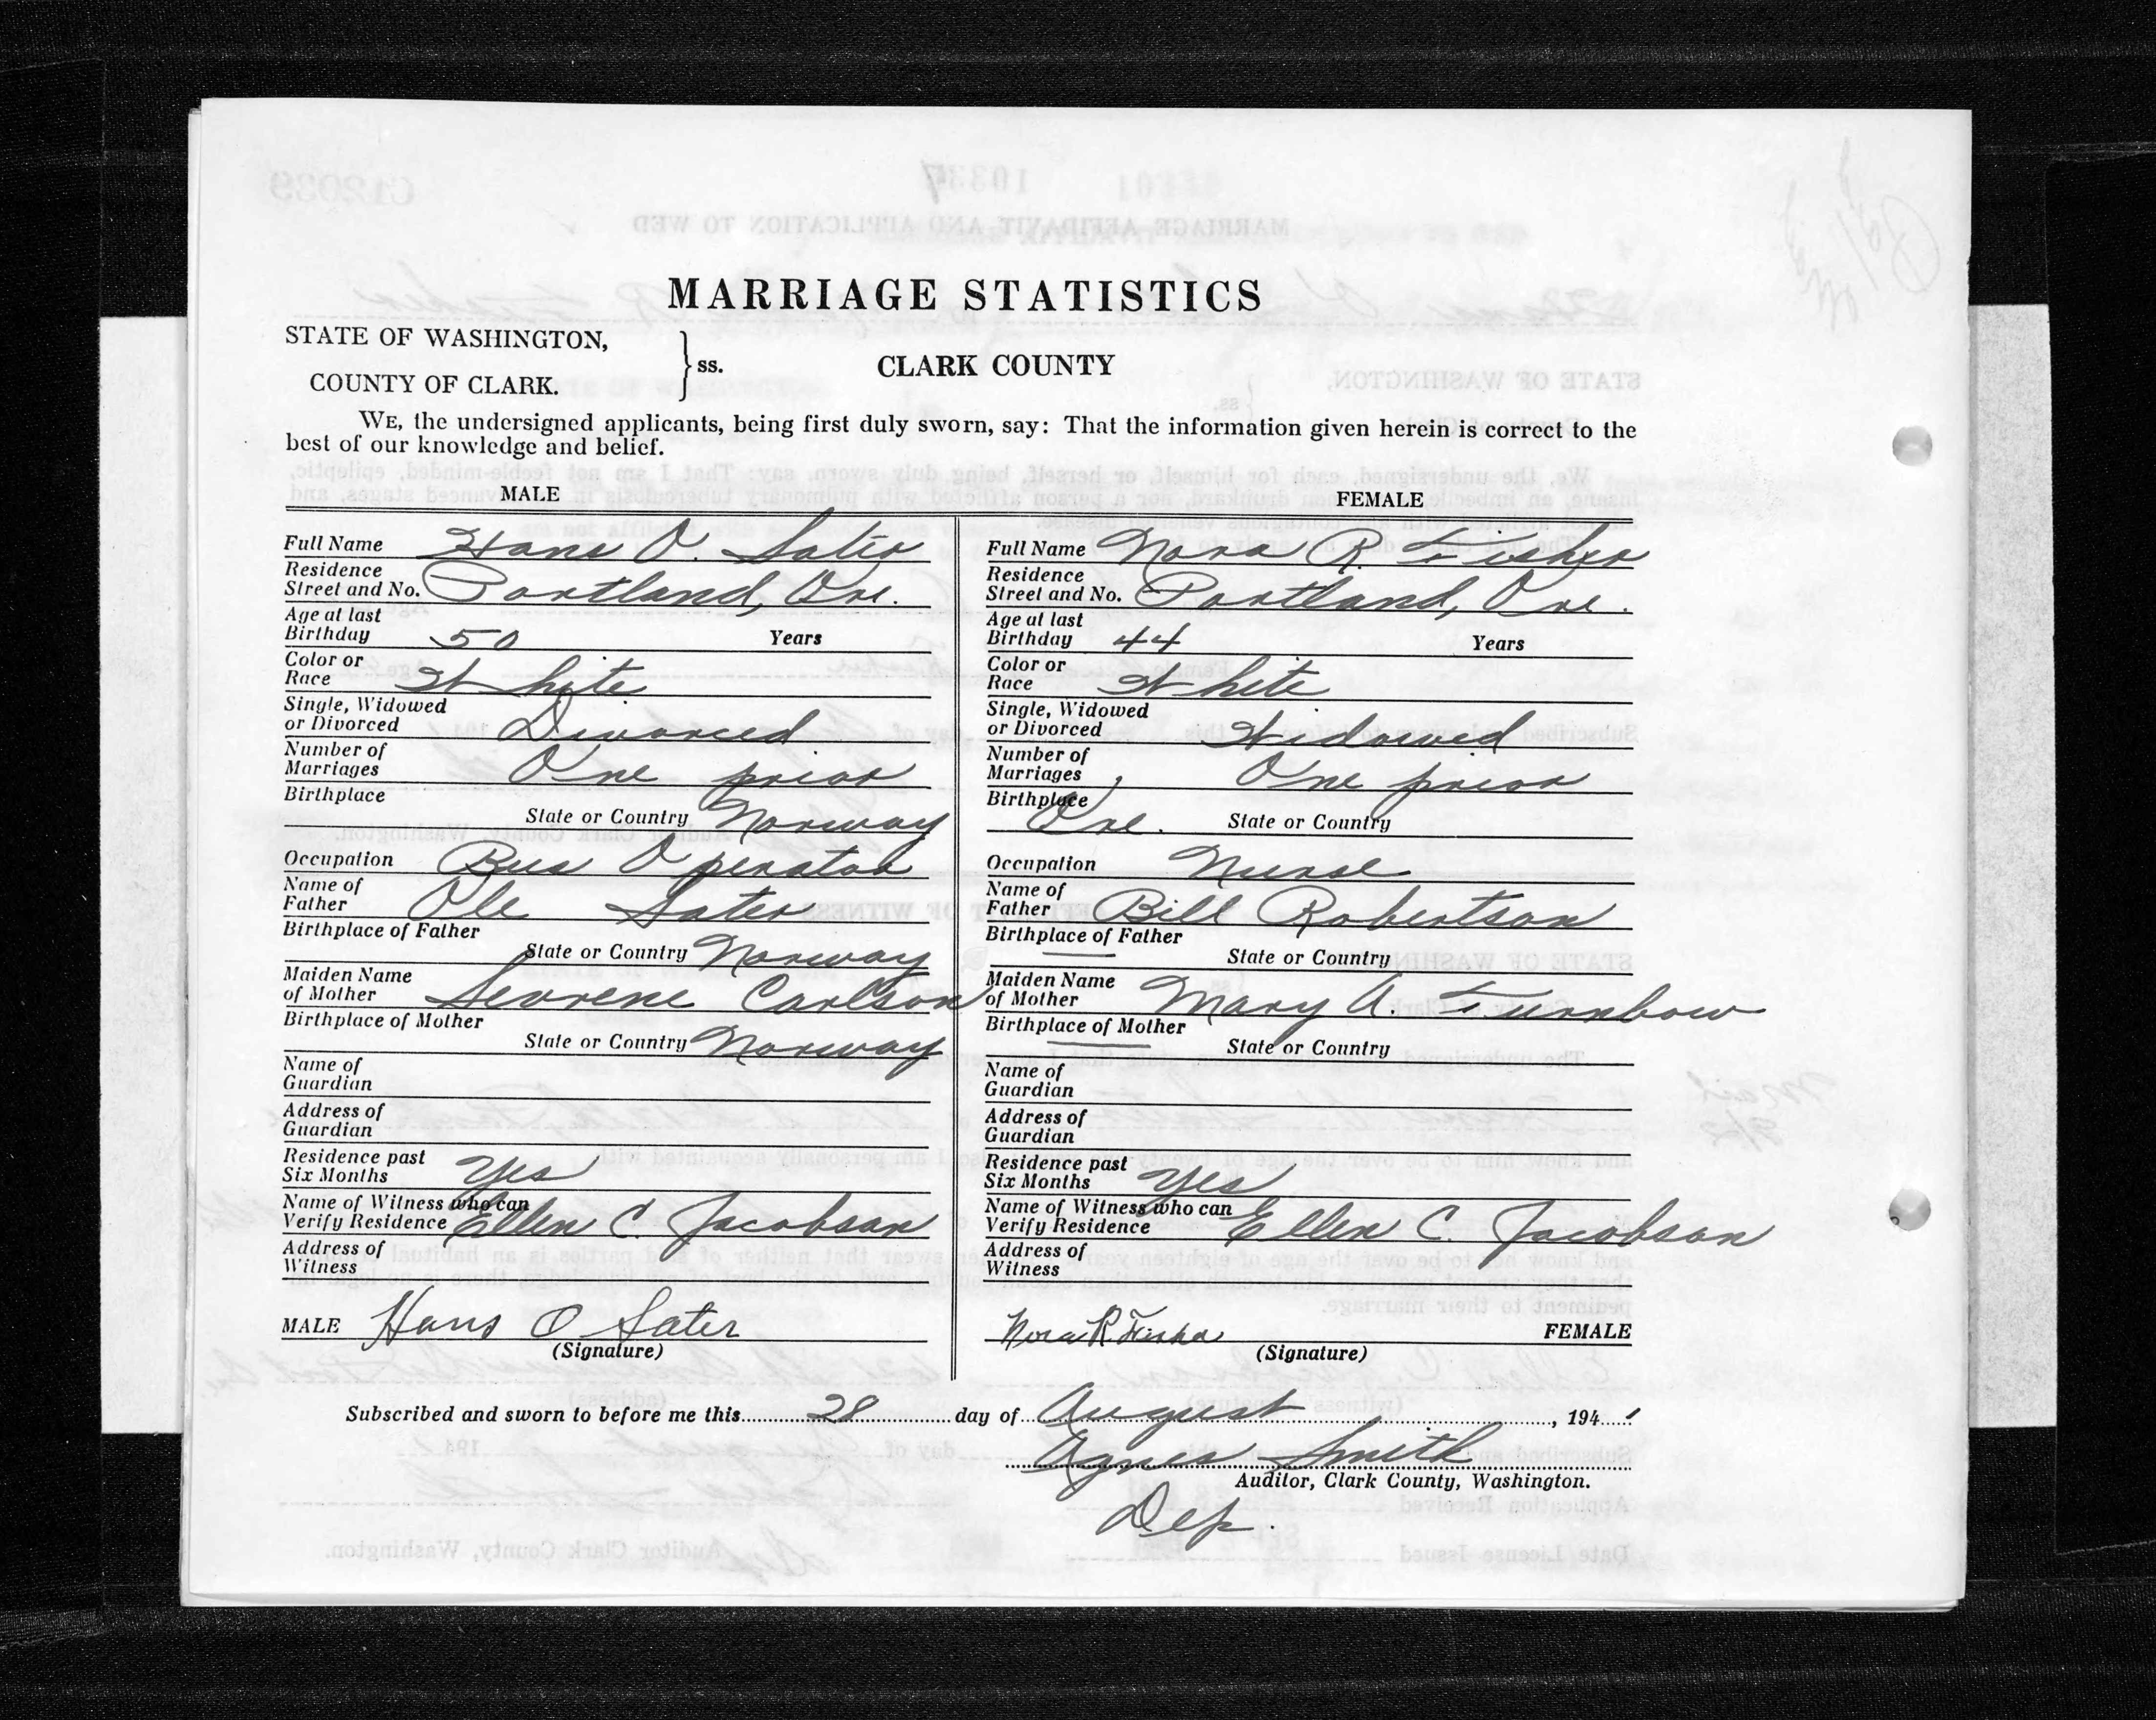 MARRIAGE STATISTICS
STATE OF WASHINGTON,
COUNTY OF CLARK.
} ss.
CLARK COUNTY
WE, the undersigned applicants, being first duly sworn, say: That the information given herein is correct to the
best of our knowledge and belief.
MALE
Full Name Hans O. Sater
Residence
Street and No. Portland, Ore.
Age at last
Birthday 50 Years
Color or
Race White
Single, Widowed
or Divorced Divorced.
Number of
Marriages One prior
Birthplace
State or Country Norway
Occupation Bus Operator
Name of
Father Ole Sater
Birthplace of Father
State or Country Norway
Maiden Name
of Mother Sevrene Carlson
Birthplace of Mother
State or Country Norway
Name of
Guardian
Address of
Guardian
Residence past
Six Months Yes
Name of Witness who can
Verify Residence Ellen C. Jacobson
Address of
Witness
MALE Hans O Sater
(Signature)
FEMALE
Full Name Nora R. Fisher
Residence
Street and No. Portland, Ore.
Age at last
Birthday 44 Years
Color or
Race White
Single, Widowed
or Divorced Widowed
Number of
Marriages One prior
Birthplace
Ore. State or Country
Occupation Nurse
Name of
Father Bill Robertson
Birthplace of Father
State or Country
Maiden Name
of Mother Mary A. Turnbow
Birthplace of Mother
State or Country
Name of
Guardian
Address of
Guardian
Residence past
Six Months Yes
Name of Witness who can
Verify Residence Ellen C. Jacobson
Address of
Witness
Nora R. Fisher FEMALE
(Signature)
Subscribed and sworn to before me this 28 day of August, 1941
Agnes Smith
Auditor, Clark County, Washington.
Dep.